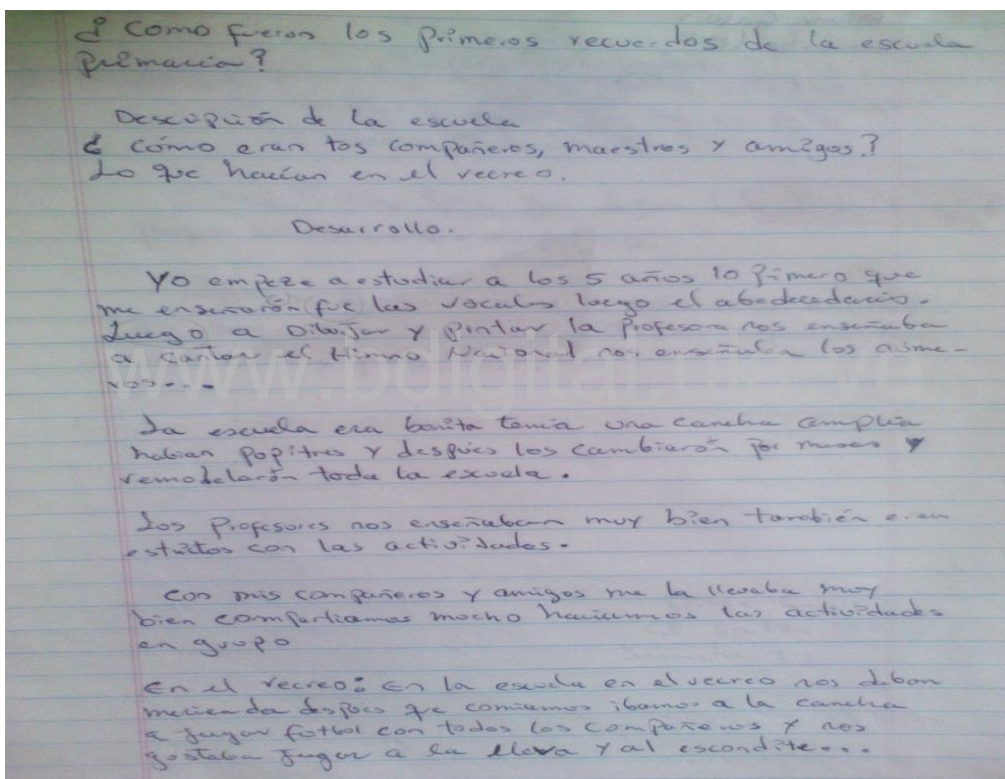 ¿ Como fueron los primeros recuerdos de la escuela
primaria?
Descripción de la escuela
¿ cómo eran tos compañeros, maestros y amigos?
Lo que hacian en el recreo.
Desarrollo.
Yo empeze a estudiar a los 5 años lo primero que
me enseñarón fue las vocales luego el abedecedario.
Luego a Dibujar y pintar la profesora nos enseñaba
a cantar el Himno Nacional nos enseñaba los núme-
ros...
www.bdigital.u
ve
La escuela era bonita tenia una cancha amplia
habian pupitres y después los cambiarón por mesas y
remodelarón toda la escuela.
Los profesores nos enseñaban muy bien también eran
estrictos con las actividades.
con mis compañeros y amigos me la llevaba muy
bien compartiamos mucho haciamos las actividades
en grupo
En el recreo: En la escuela en el recreo nos daban
merienda despues que comiamos ibamos a la cancha
a jugar fotbol con todos los compañeros y nos
gostaba jugar a la lleva y al escondite...